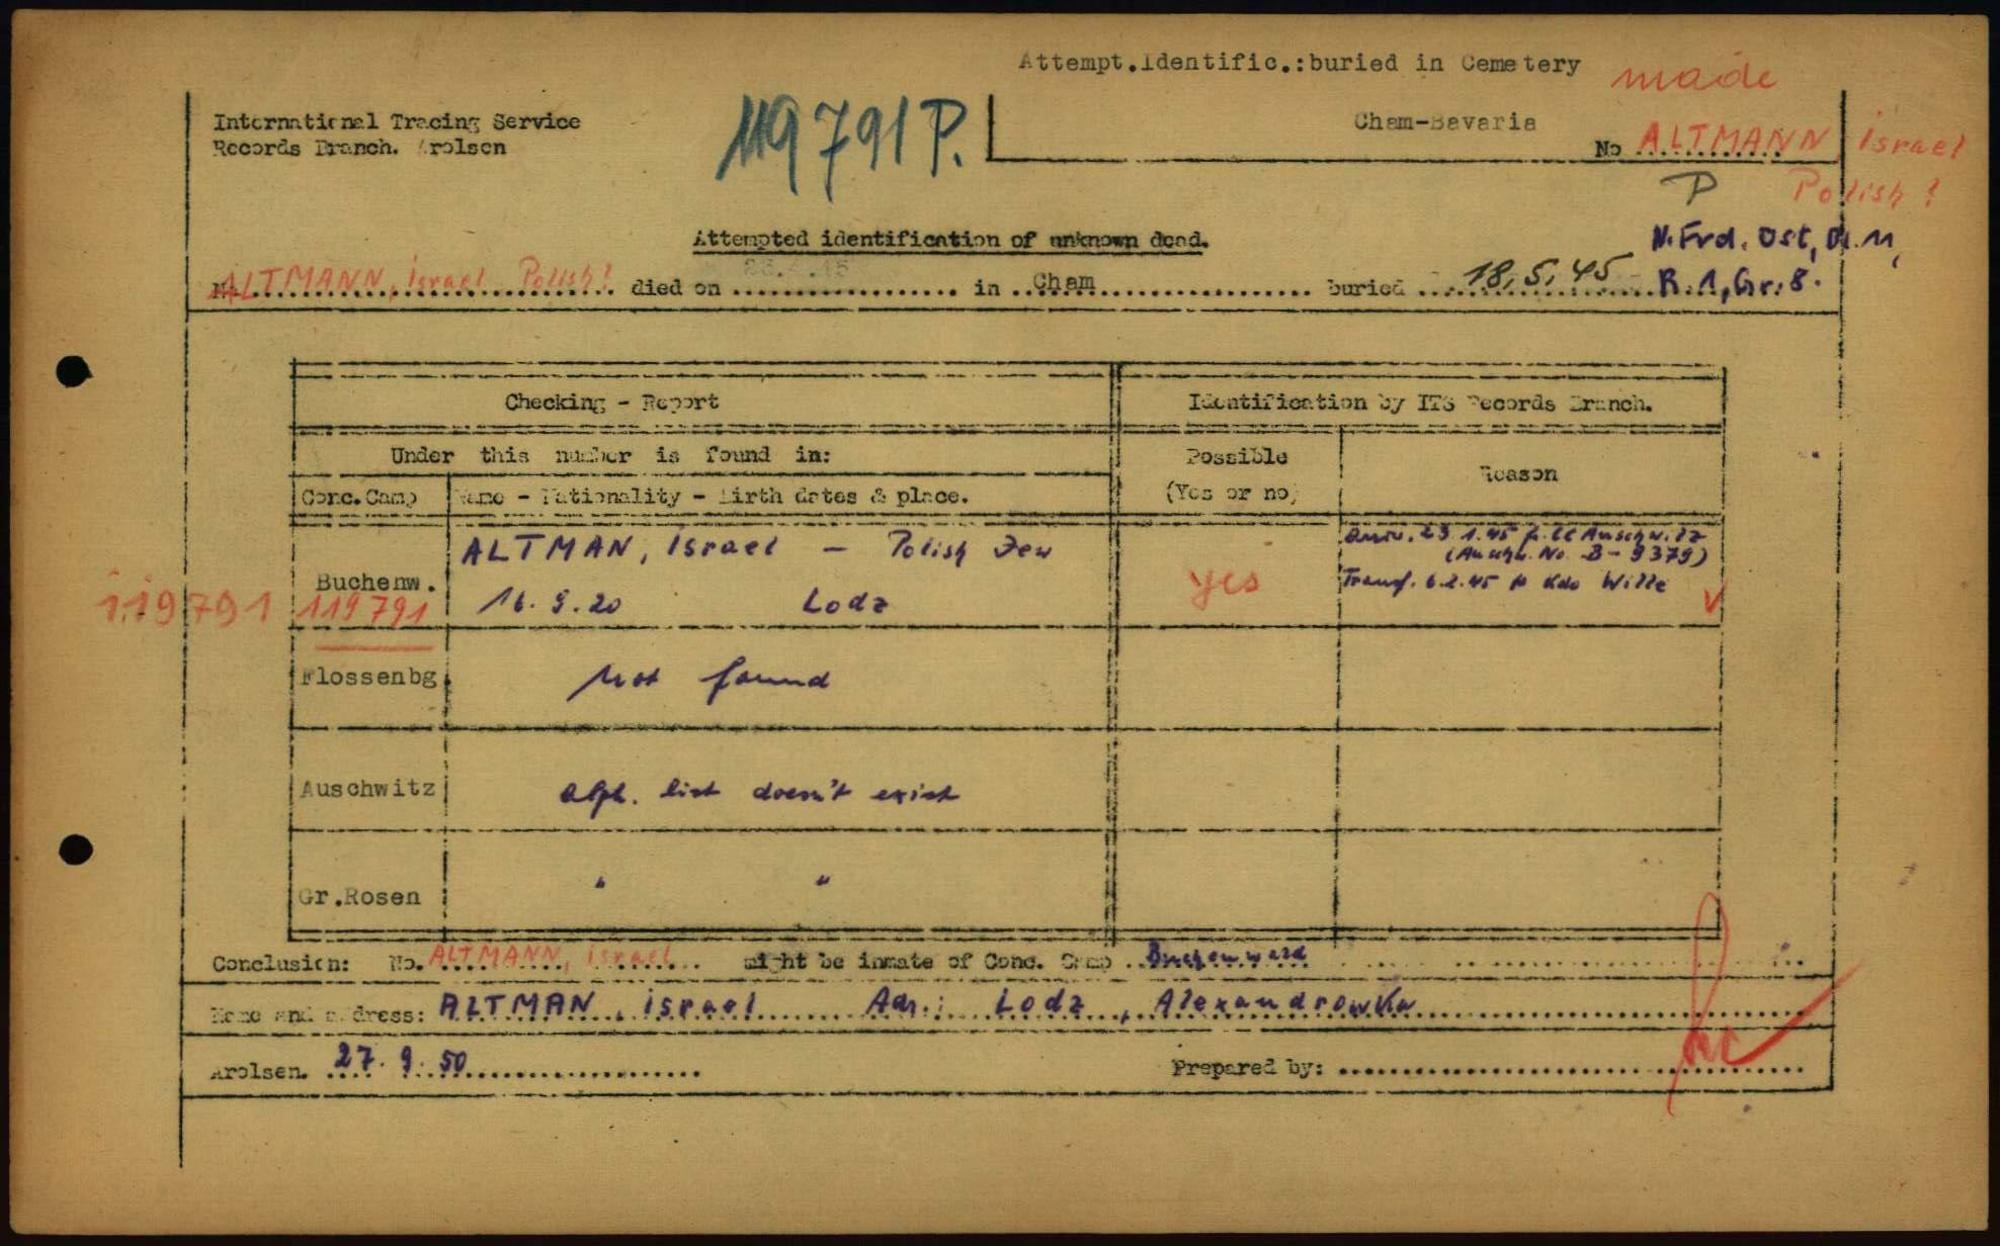 Attempt.Identific.:buried in Cemetery made
International Tracing Service
Records Branch. Arolsen
119791 P.
Cham-Bavaria
No ALTMANN, Israel
P Polish!
N.Frd. Ost,
Attempted identification of unknown dead.
ALTMANN, Israel Polish! died on in Cham buried 18.5.45 R.1, Gr.8.
Checking - Report
Identification by ITS Records Branch.
Under this number is found in:
Possible
(Yes or no)
Reason
Conc.Camp
Name - Nationality - Birth dates & place.
Buchenw.
119791 119791
ALTMAN, Israel - Polish Jew
16.9.20 Lodz
yes
23.1.45 Auschwitz
(Auschw. No. B-9379)
Transf. 6.2.45 Kdo Wille
Flossenbg.
not found
Auschwitz
alph. list doesn't exist
Gr.Rosen
" "
Conclusion: No. ALTMANN, Israel might be inmate of Conc. Camp Buchenwald
Name and address: ALTMAN, Israel Adr.: Lodz, Alexandrowka
Arolsen. 27.9.50 Prepared by: